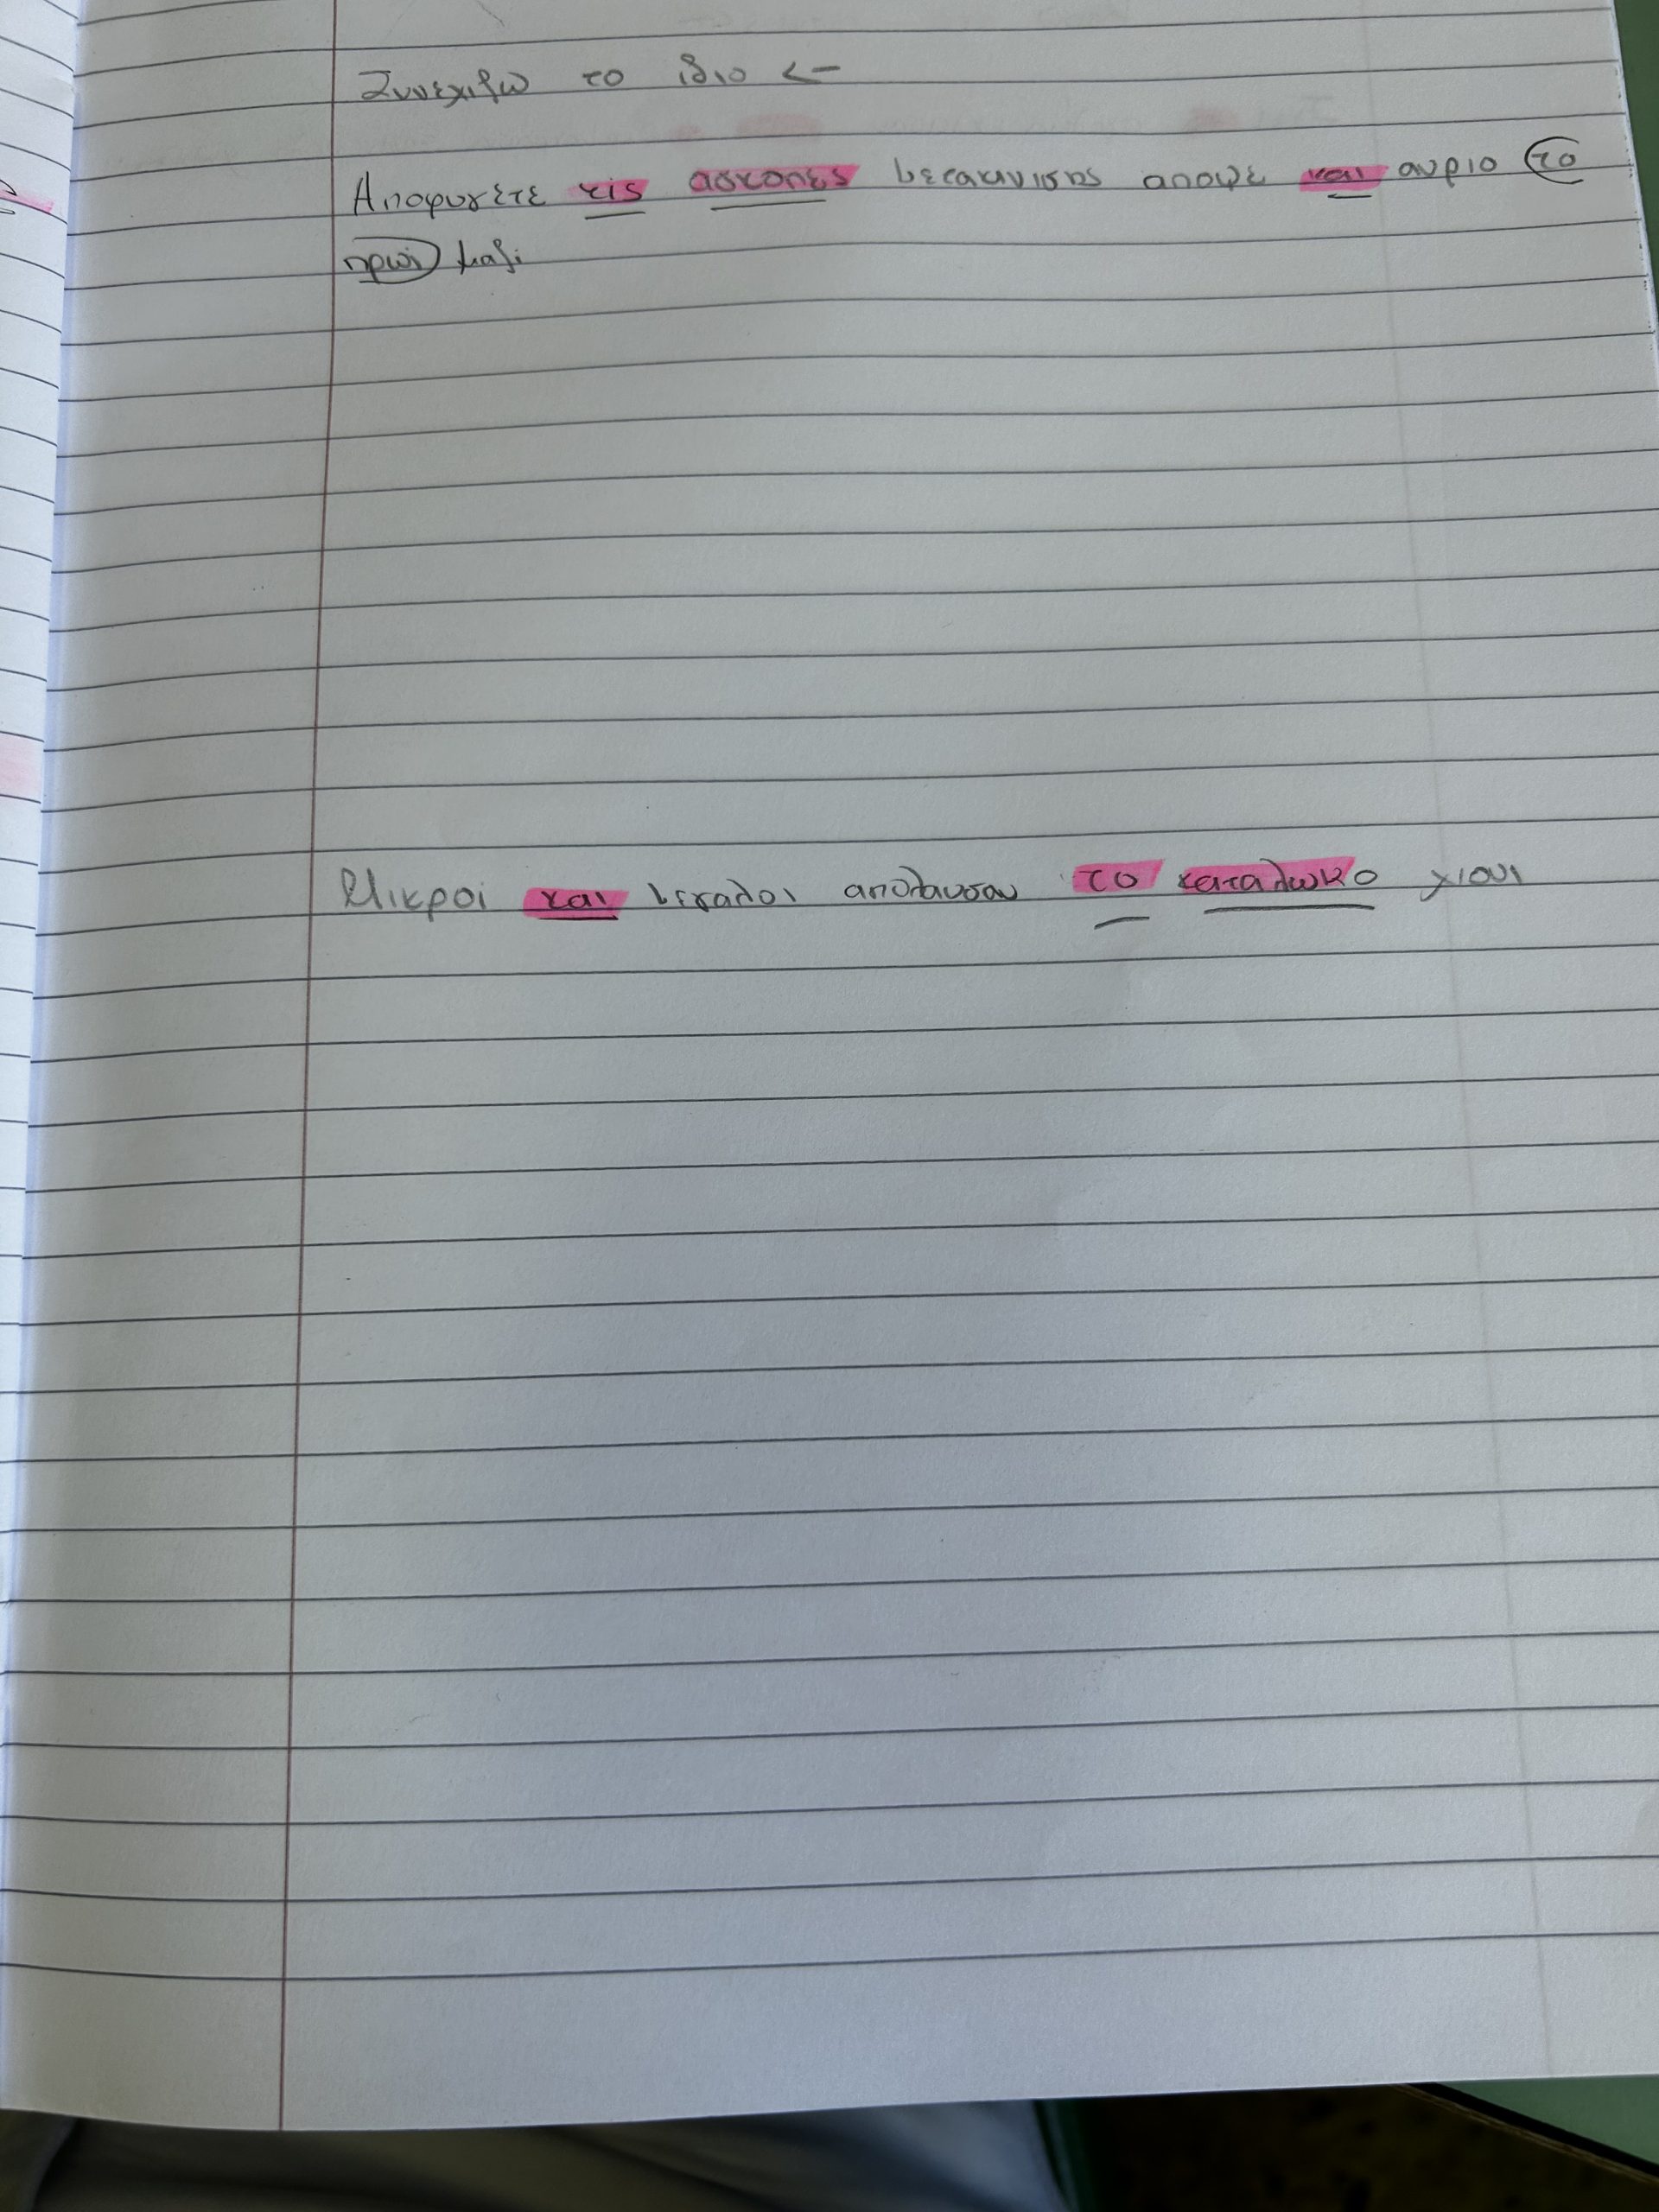 Συνεχιζω το ιδιο <-
Αποφυγετε τις ασκοπες μετακινισης αποψε και αυριο το
πρωι μαζι
Μικροι και μεγαλοι απολαυσαν το καταλωκο χιονι